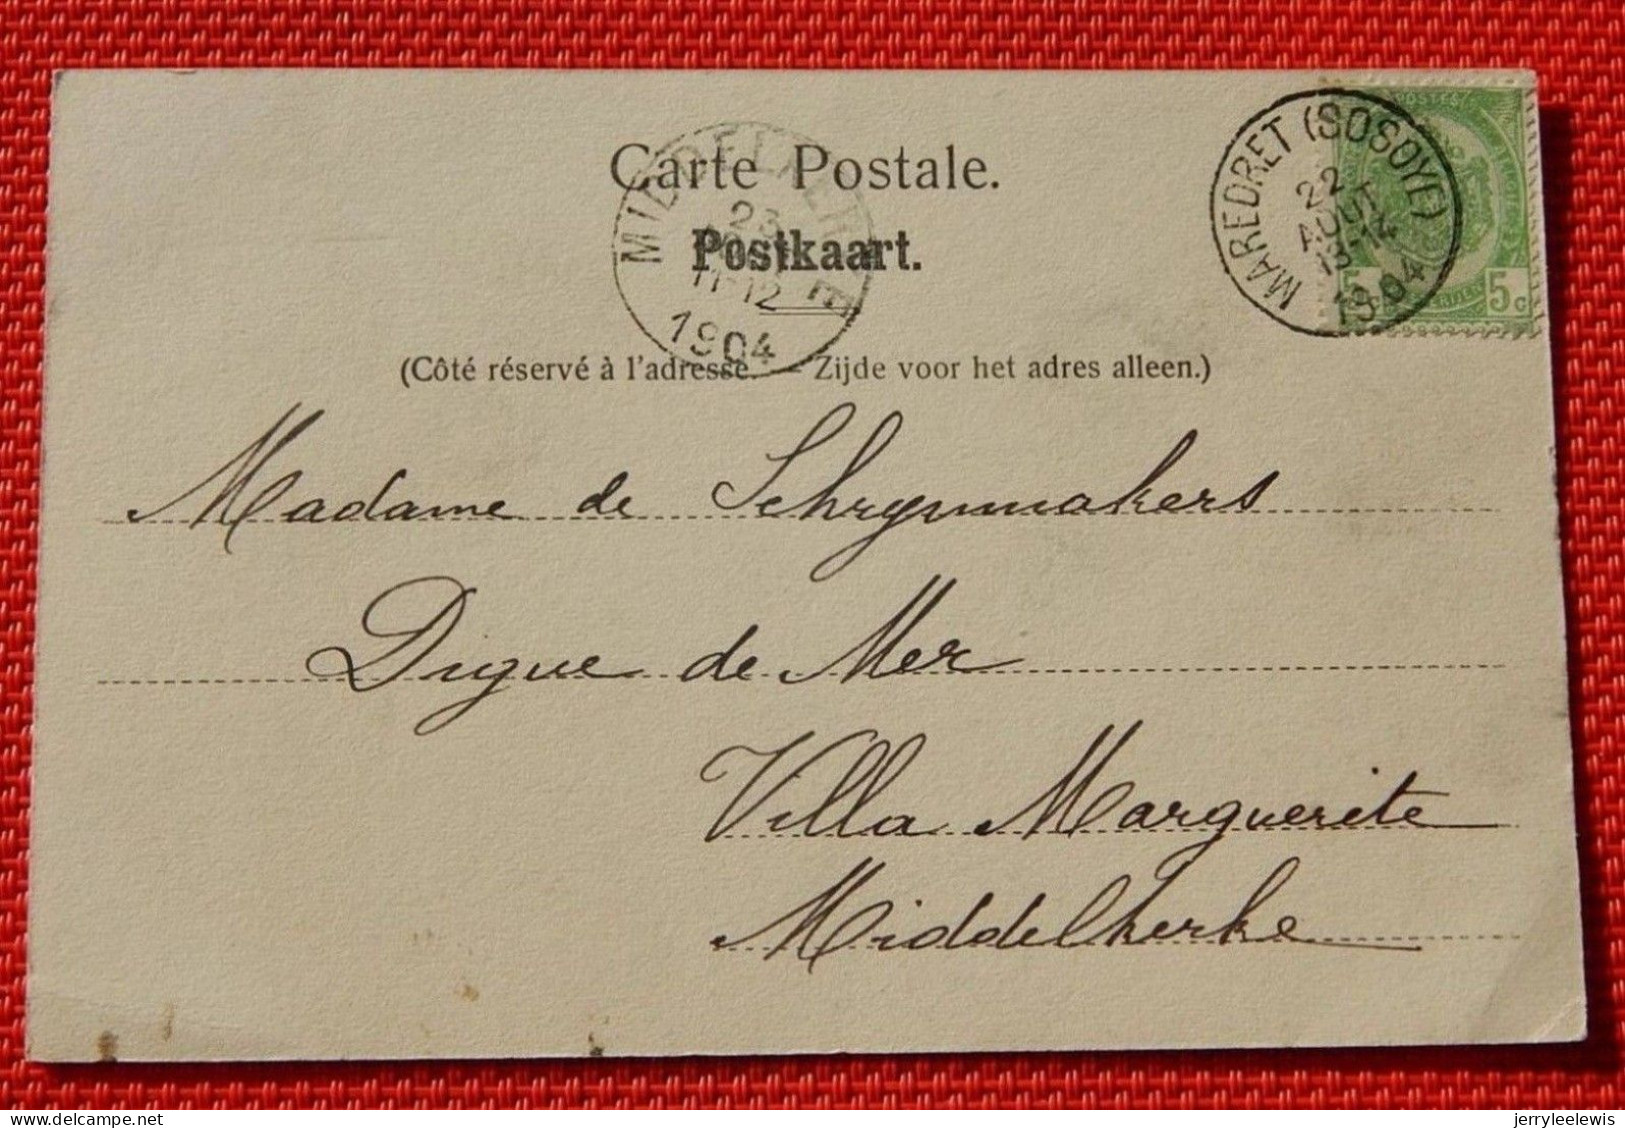 Carte Postale.
Postkaart.
(Côté réservé à l'adresse. — Zijde voor het adres alleen.)
MIDDELKERKE
23
11-12
1904
MAREDRET (SOSOYE)
22
AOUT
13-14
1904
POSTES
5c 5c
Madame de Schrynmakers
Digue de Mer
Villa Marguerite
Middelkerke
delcampe.net
jerryleelewis